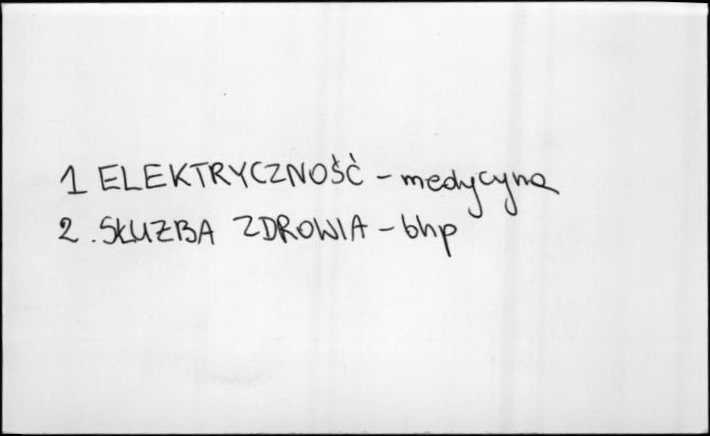 1 ELEKTRYCZNOŚĆ - medycyna
2. SŁUZBA ZDROWIA - bhp